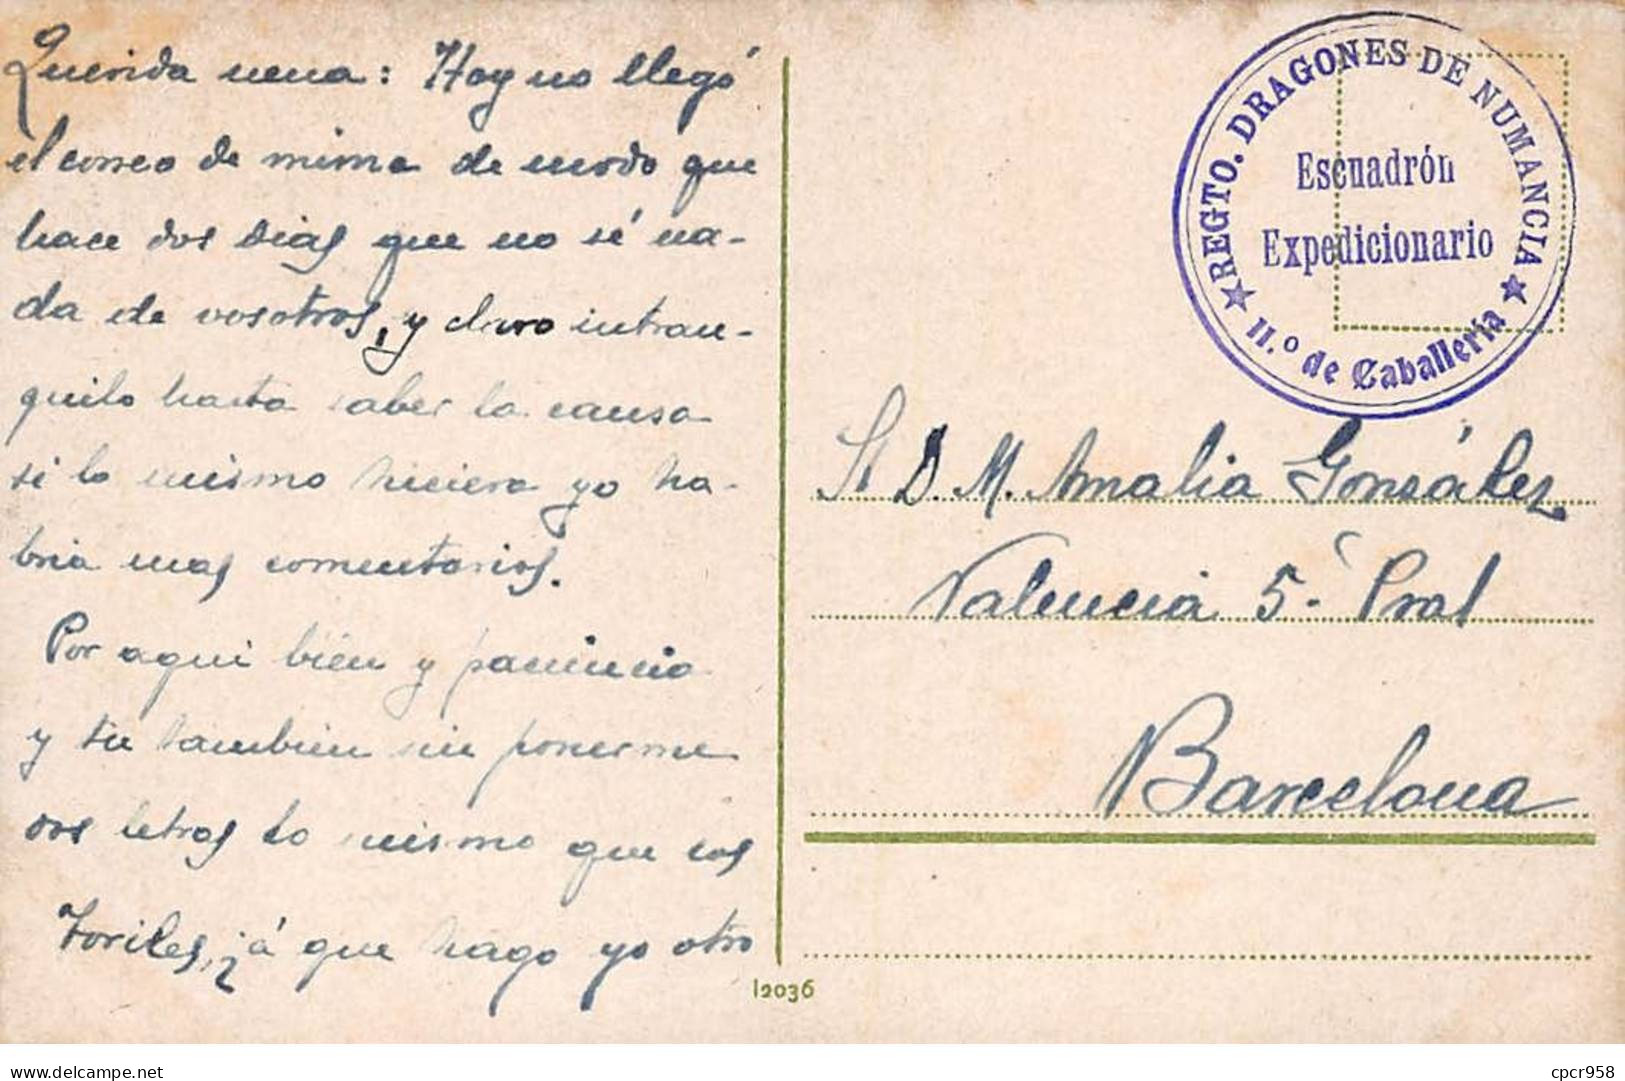 Querida nena: Hoy no llegó
el correo de mima de modo que
hace dos dias que no sé na-
da de vosotros, y claro intran-
quilo hasta saber la causa
si lo mismo hiciera yo ha-
bria mas comentarios.
Por aqui bien y
y tu tambien sin ponerme
dos letras lo mismo que los
Toriles, já que hago yo otro
REGTO. DRAGONES DE NUMANCIA
Escuadrón
Expedicionario
11.º de Caballería
D. M. Amalia González
Valencia 5- Pral
Barcelona
12036
delcampe.net
cpcr958